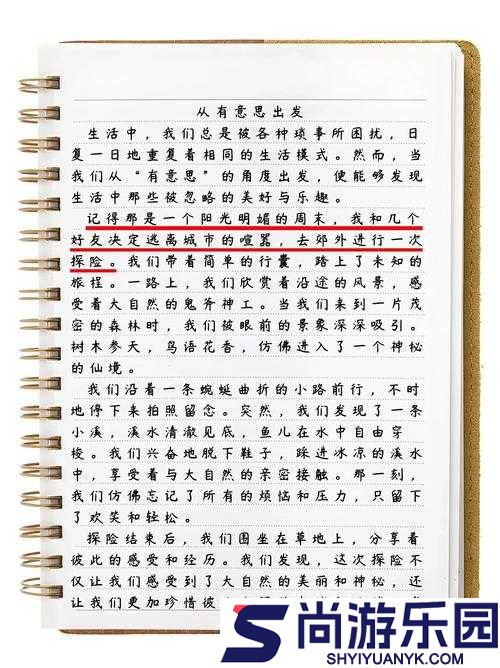 从有意思出发
生活中，我们总是被各种琐事所困扰，日
复一日地重复着相同的生活模式。然而，当
我们从“有意思”的角度出发，便能够发现
生活中那些被忽略的美好与乐趣。
记得那是一个阳光明媚的周末，我和几个
好友决定逃离城市的喧嚣，去郊外进行一次
探险。我们带着简单的行囊，踏上了未知的
旅程。一路上，我们欣赏着沿途的风景，感
受着大自然的鬼斧神工。当我们来到一片茂
密的森林时，我们被眼前的景象深深吸引。
树木参天，鸟语花香，仿佛进入了一个神秘
的仙境。
我们沿着一条蜿蜒曲折的小路前行，不时
地停下来拍照留念。突然，我们发现了一条
小溪，溪水清澈见底，鱼儿在水中自由穿
梭。我们兴奋地脱下鞋子，踩进冰凉的溪水
中，享受着与大自然的亲密接触。那一刻，
我们仿佛忘记了所有的烦恼和压力，只留下
了欢笑和轻松。
探险结束后，我们围坐在草地上，分享着
彼此的感受和经历。我们发现，这次探险不
仅让我们感受到了大自然的美丽和神秘，还
让我们更加珍惜彼
S 尚游乐园
SHYIYUANYK.COM